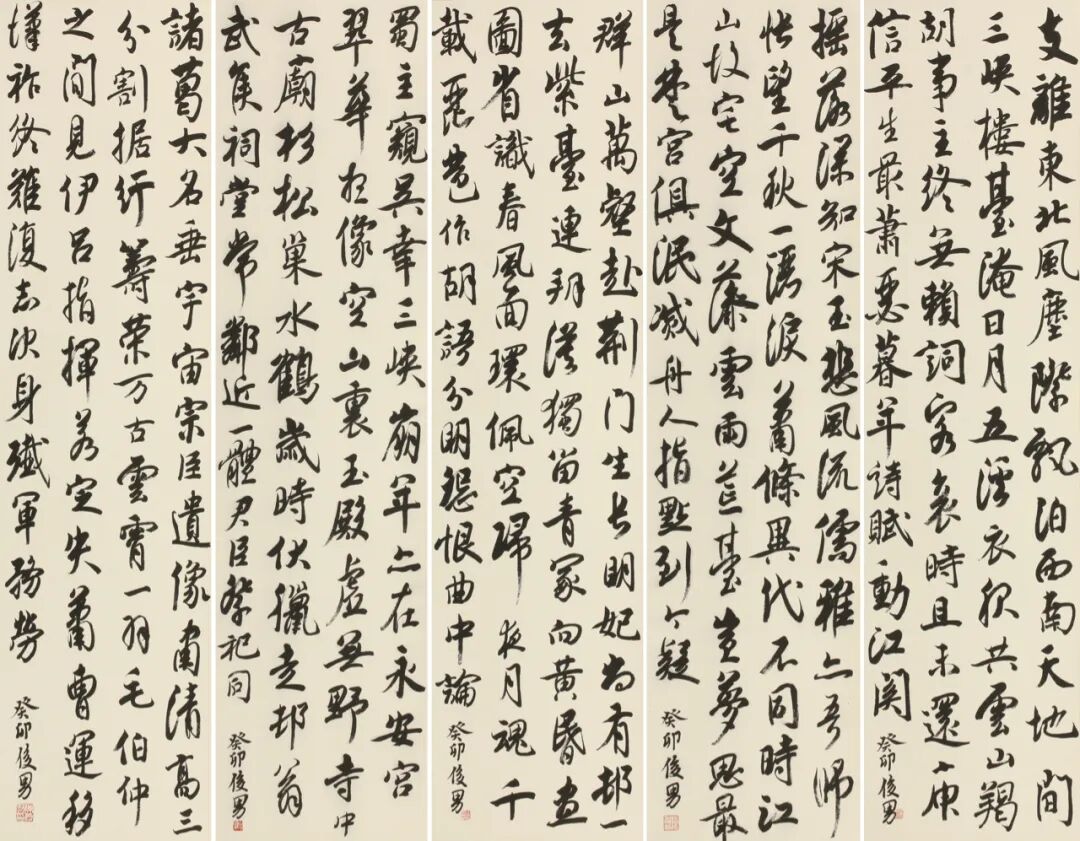 支離東北風塵際飄泊西南天地間
三峡樓臺淹日月五溪衣服共雲山羯
胡事主終無賴詞客哀時且未還庾
信平生最蕭瑟暮年詩賦動江関
癸卯俊男
摇落深知宋玉悲風流儒雅亦吾師
悵望千秋一灑淚蕭條異代不同時江
山故宅空文藻雲雨荒臺豈夢思最
是楚宫俱泯滅舟人指點到今疑
癸卯俊男
群山萬壑赴荆门生長明妃尚有邨一
去紫臺連朔漠獨留青冢向黄昏畫
圖省識春風面環佩空歸夜月魂千
載琵琶作胡語分明怨恨曲中論
癸卯俊男
蜀主窺吴幸三峡崩年亦在永安宫
翠華想像空山裏玉殿虚無野寺中
古廟杉松巢水鶴歲時伏臘走邨翁
武侯祠堂常鄰近一體君臣祭祀同
癸卯俊男
諸葛大名垂宇宙宗臣遺像肅清高三
分割據紆籌策万古雲霄一羽毛伯仲
之間見伊吕指揮若定失蕭曹運移
漢祚終難復志决身殲軍務勞
癸卯俊男